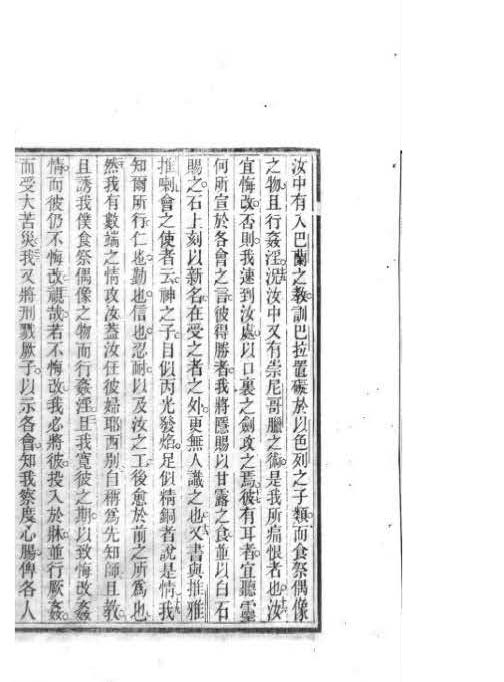 汝中有入巴蘭之教訓巴拉置礙於以色列之子類而食祭偶像
之物且行姦淫況汝中又有崇尼哥臘之術是我所痛恨者也汝
宜悔改否則我速到汝處以口裏之劍攻之焉彼有耳者宜聽靈
何所宣於各會之言彼得勝者我將隱賜以甘露之食並以白石
賜之石上刻以新名在受之者之外更無人識之也又書與推雅
推喇會之使者云神之子目似丙光發焰足似精銅者說是情我
知爾所行仁也勤也信也忍耐以及汝之工後愈於前之所為也
然我有數端之情攻汝蓋汝任彼婦耶洒別自稱爲先知師且教
且誘我僕食祭偶像之物而行姦淫且我寬彼之期以致悔改姦
情而彼仍不悔改覩哉若不悔改我必將彼投入於牀並行厥姦
而受大苦災我又將刑戮厥子以示各會知我察度心腸俾各人